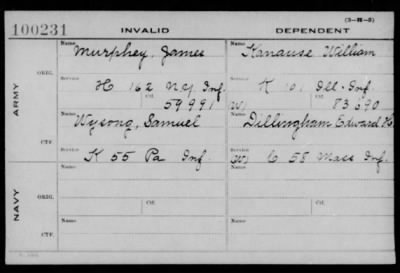 (3-H-5)
100231 INVALID DEPENDENT
ARMY
ORIG.
Name Murphey, James
Service H 162 N.Y Inf.
Ctf. 59991
Name Kanause William
Service K 101 Ill. Inf.
W) Ctf. 83690
CTF.
Name Wysong, Samuel
Service K 55 Pa Inf.
Name Dillingham Edward
Service W) C 58 Mass Inf.
NAVY
ORIG.
Name
Ctf.
Name
Ctf.
CTF.
Name
Name